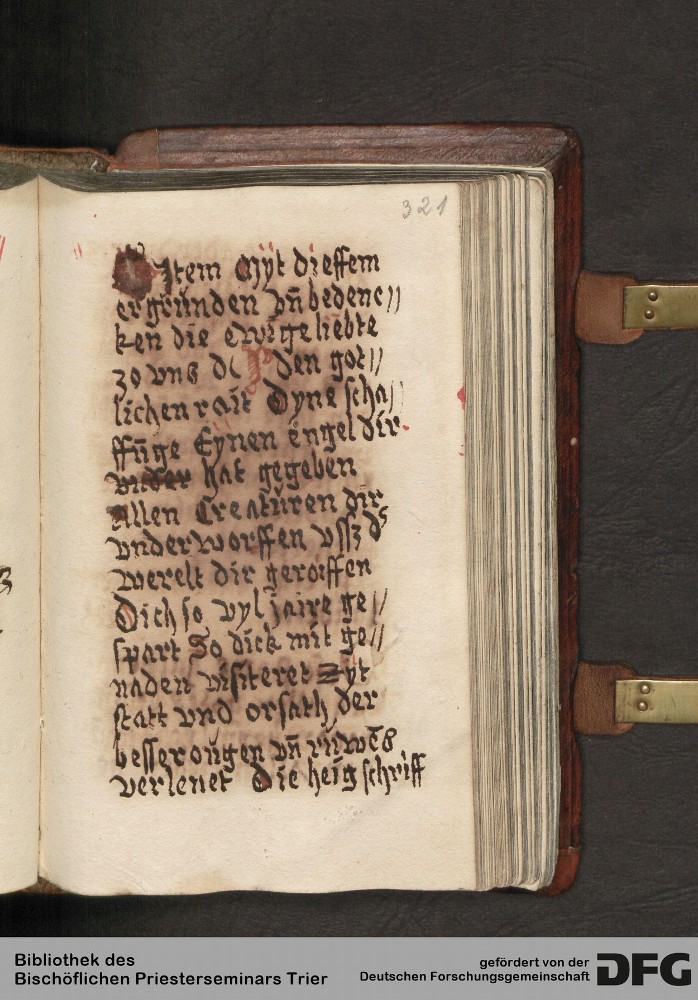 321
Item Mÿt dieſſem
ergründen vn̄ bedenc//
ken die ewige liebte
zo vns den got//
lichen rait Dyne ſcha//
ffūge Eynen engel dir
hat gegeben
Allen Creatüren dir
vnderworffen vſſz dˢ
werelt dir geroiffen
Dich ſo vyl jaire ge//
ſpart So dick mit ge//
naden viſiteret Zÿt
ſtatt vnd orſath der
beſſerongen vn̄
verlenet Die heig ſchriff
Bibliothek des
Bischöflichen Priesterseminars Trier
gefördert von der
Deutschen Forschungsgemeinschaft
DFG